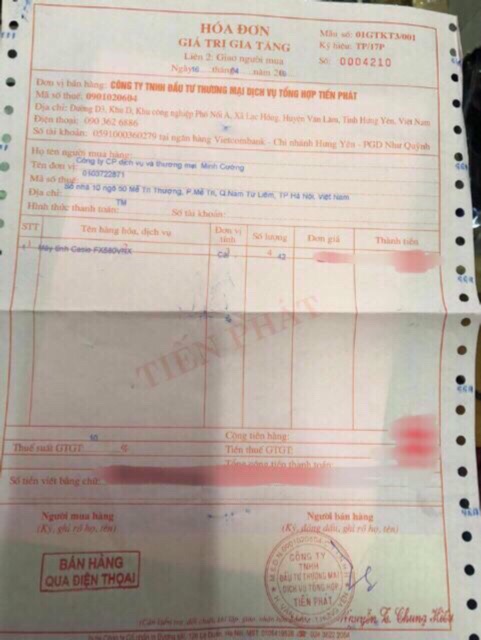 HÓA ĐƠN
GIÁ TRỊ GIA TĂNG
Liên 2: Giao người mua
Mẫu số: 01GTKT3/001
Ký hiệu: TP/17P
Số: 0004210
Ngày tháng 04 năm
Đơn vị bán hàng: CÔNG TY TNHH ĐẦU TƯ THƯƠNG MẠI DỊCH VỤ TỔNG HỢP TIẾN PHÁT
Mã số thuế: 0901020604
Địa chỉ: Đường D3, Khu D, Khu công nghiệp Phố Nối A, Xã Lạc Hồng, Huyện Văn Lâm, Tỉnh Hưng Yên, Việt Nam
Điện thoại: 090 362 6886
Số tài khoản: 0591000360279 tại ngân hàng Vietcombank - Chi nhánh Hưng Yên - PGD Như Quỳnh
Họ tên người mua hàng:
Tên đơn vị: Công ty CP dịch vụ và thương mại Minh Cường
Mã số thuế: 0103722871
Địa chỉ: Số nhà 10 ngõ 50 Mễ Trì Thượng, P.Mễ Trì, Q.Nam Từ Liêm, TP Hà Nội, Việt Nam
Hình thức thanh toán: TM Số tài khoản:
STT Tên hàng hóa, dịch vụ Đơn vị tính Số lượng Đơn giá Thành tiền
Máy tính Casio
TIẾN PHÁT
Cộng tiền hàng:
Thuế suất GTGT: Tiền thuế GTGT:
Tổng cộng tiền thanh toán:
Số tiền viết bằng chữ:
Người mua hàng
(Ký, ghi rõ họ, tên)
Người bán hàng
(Ký, đóng dấu, ghi rõ họ, tên)
BÁN HÀNG
QUA ĐIỆN THOẠI
CÔNG TY
TNHH
ĐẦU TƯ THƯƠNG MẠI
DỊCH VỤ TỔNG HỢP
TIẾN PHÁT